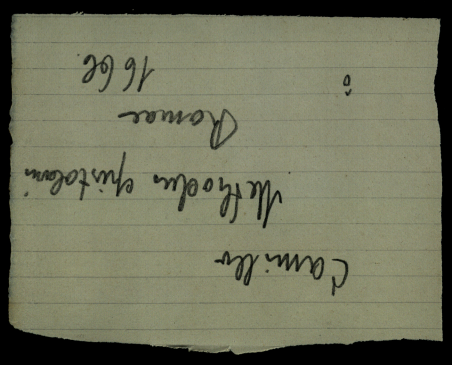 Camillo
Methodus epistolari
Romae
1666